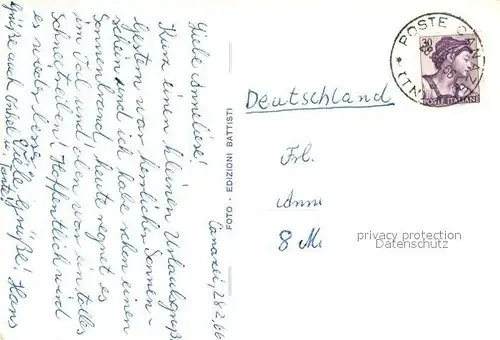 Canazei, 28.2.66
Liebe Anneliese!
Kurz einen kleinen Urlaubsgruß.
Gestern war herrlicher Sonnen-
schein und ich habe schon einen
Sonnenbrand, heute regnet es
im Tal und oben war ein tolles
Schneetreiben! Hoffentlich wird
es wieder besser.
Viele Grüße! Hans
Grüße auch Onkel u. Tante!
FOTO - EDIZIONI BATTISTI
POSTE CANAZEI
30
POSTE ITALIANE
Deutschland
Frl.
Anne
8 Mü
privacy protection
Datenschutz